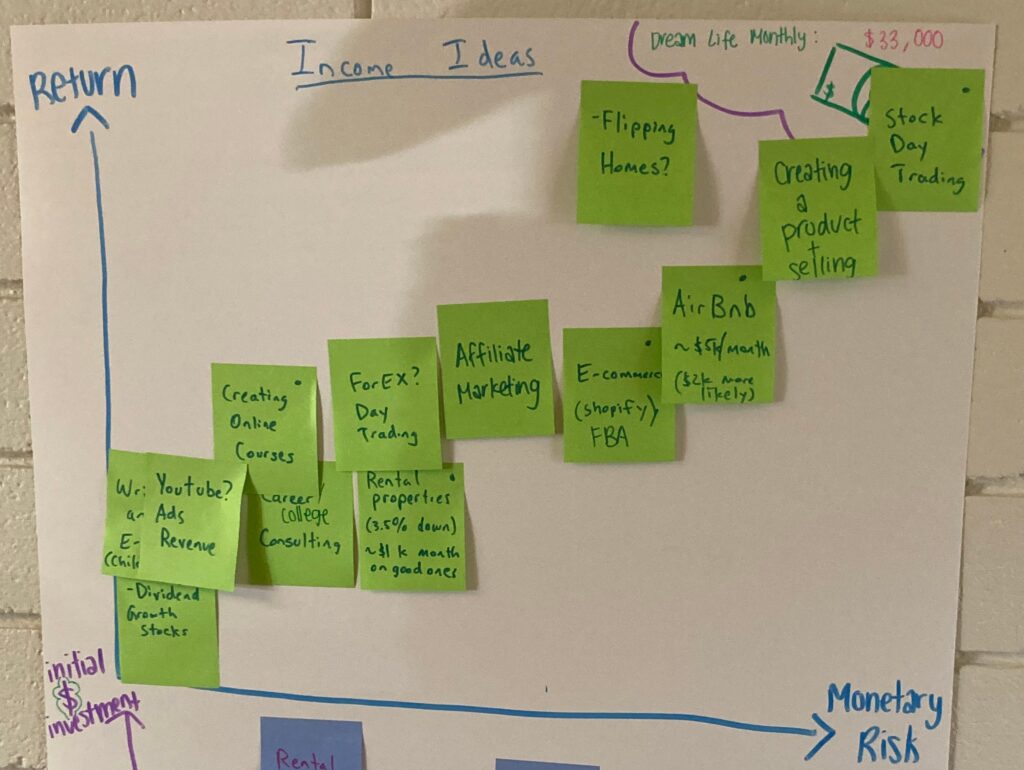 Income Ideas
Dream Life Monthly: $33,000
$
Return
-Flipping
Homes?
Stock
Day
Trading
Creating
a
product
+
selling
AirBnb
~$5k/month
($2k more
likely)
Affiliate
Marketing
E-commerc
(shopify)
FBA
ForEX?
Day
Trading
Creating
Online
Courses
Rental
properties
(3.5% down)
~$1k month
on good ones
Career
College
Consulting
Youtube?
Ads
Revenue
-Dividend
Growth
Stocks
initial
$
investment
Monetary
Risk
Rental